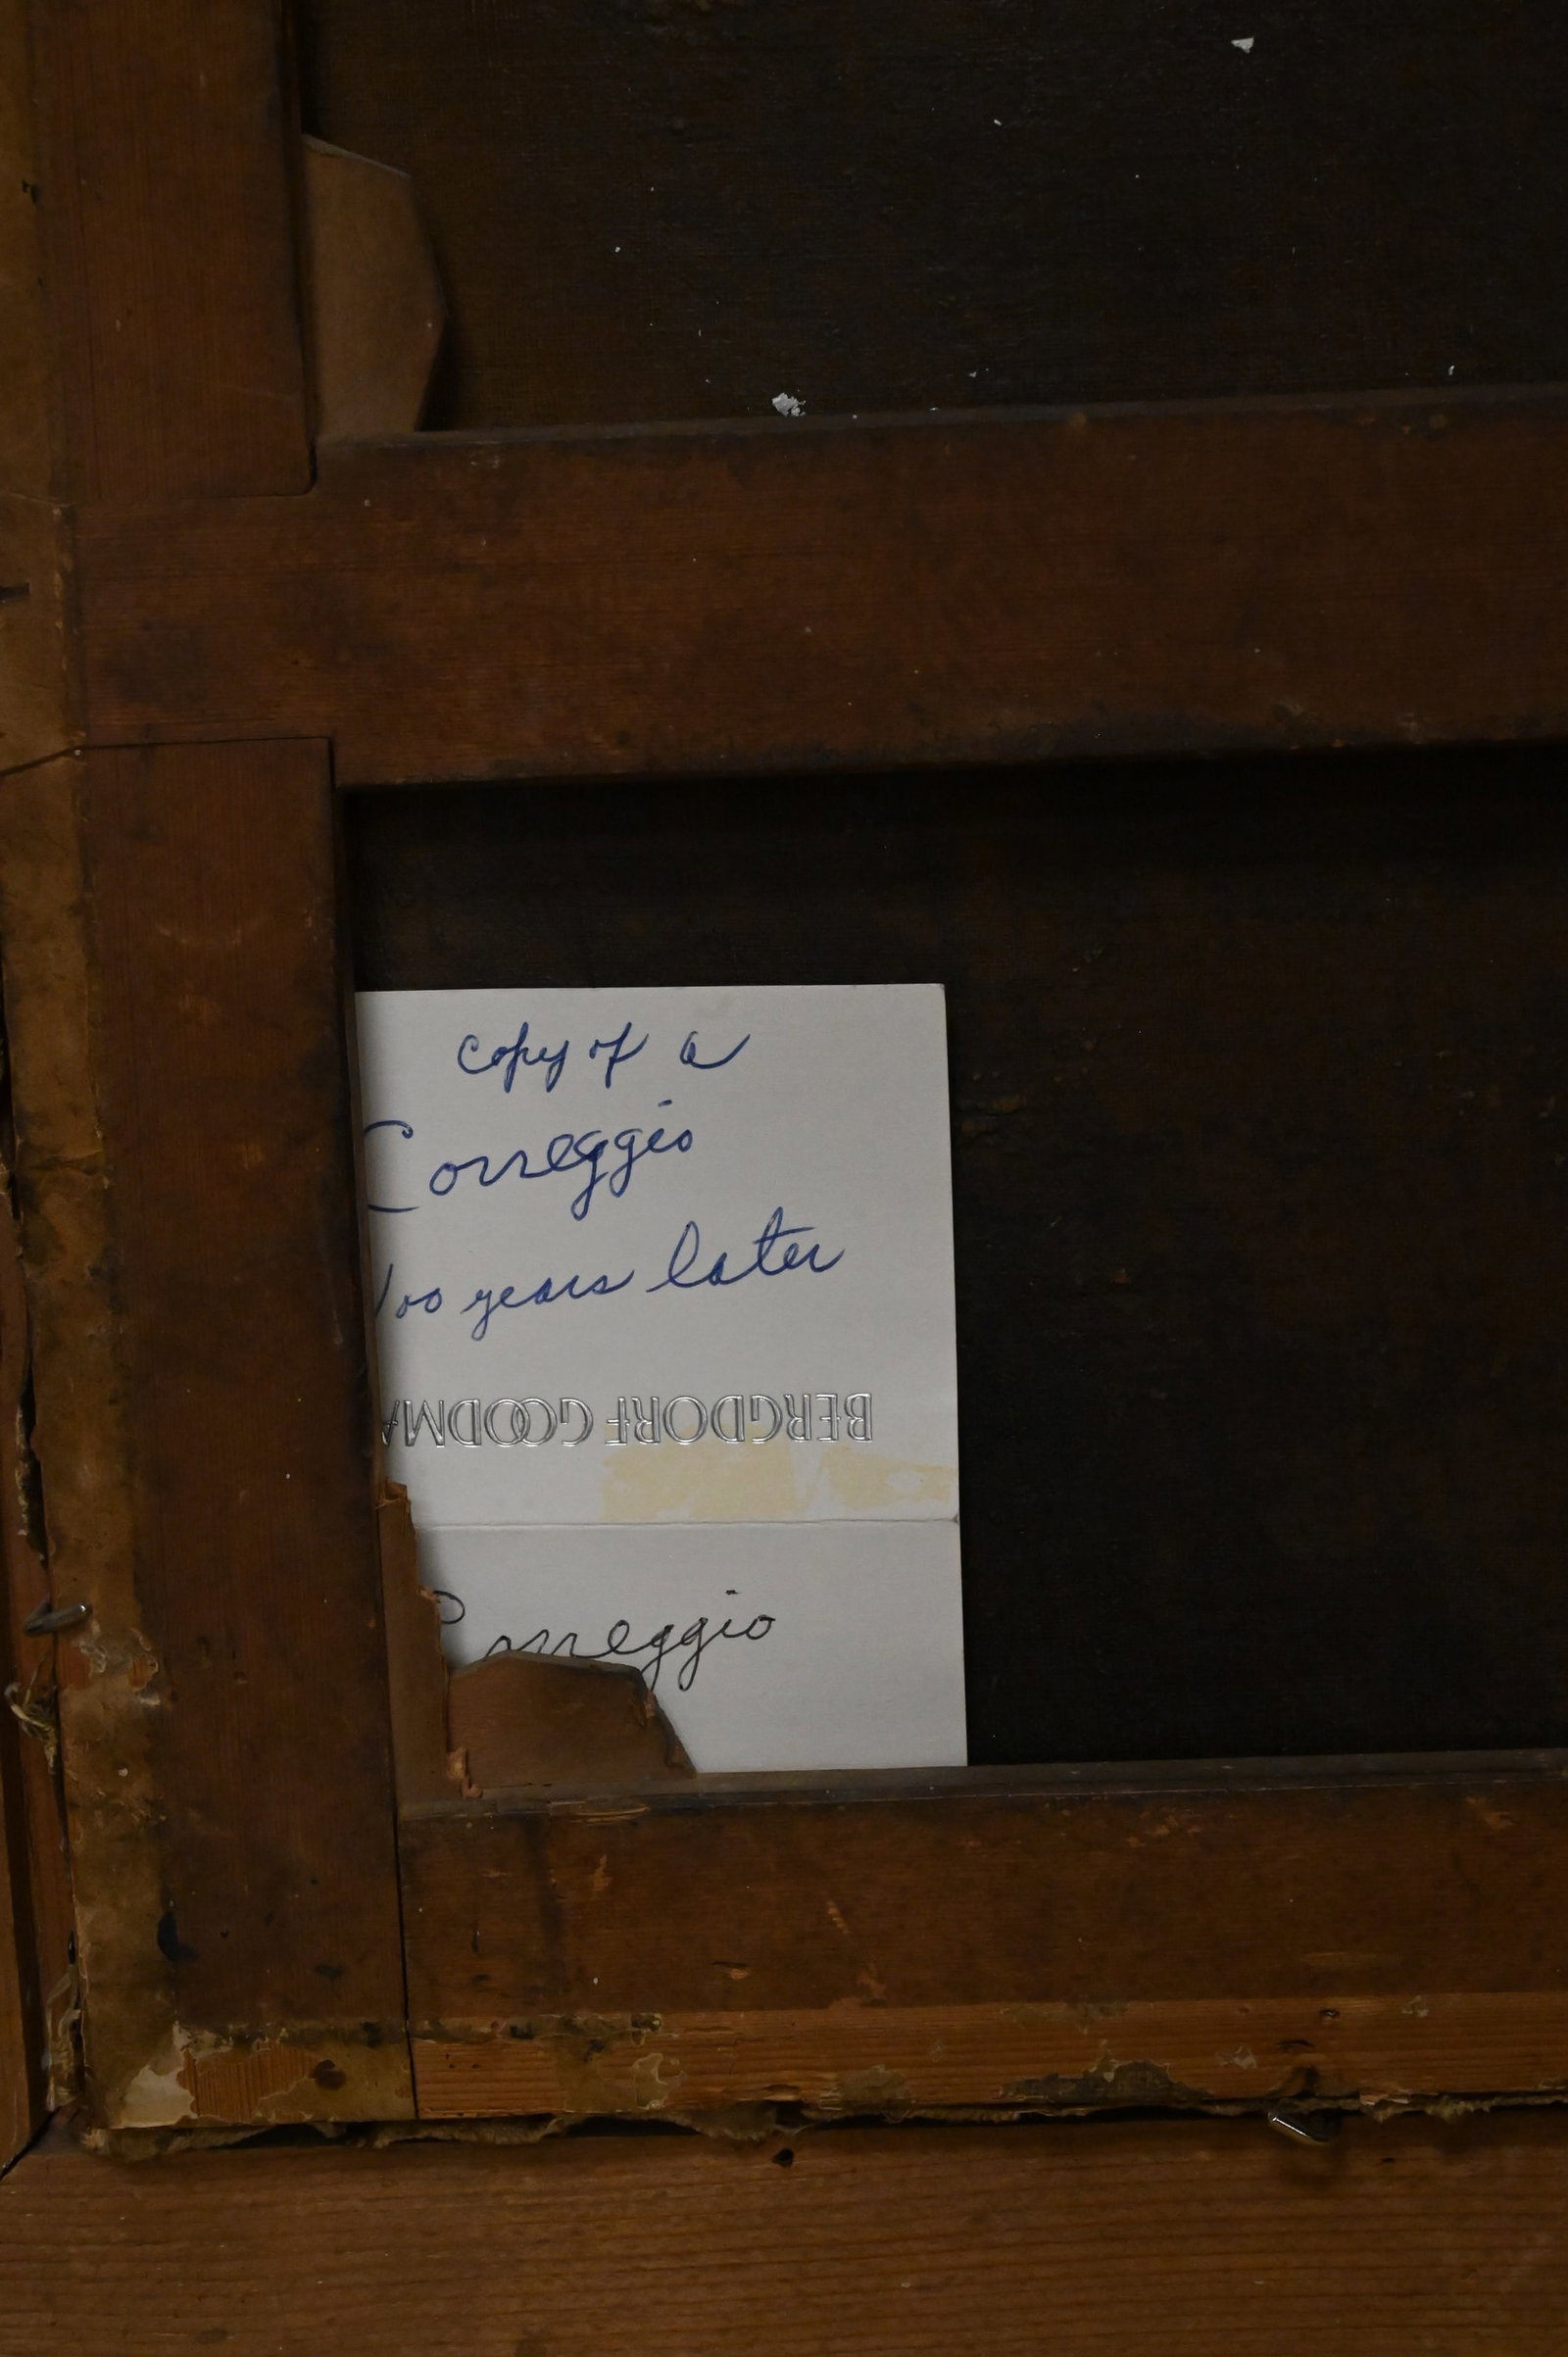 copy of a
Correggio
100 years later
BERGDORF GOODMA
Correggio